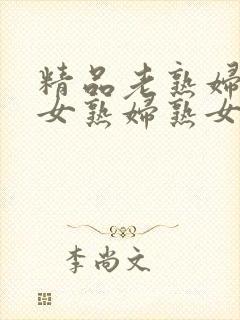 精品老熟婦
女熟婦熟女
李尚文